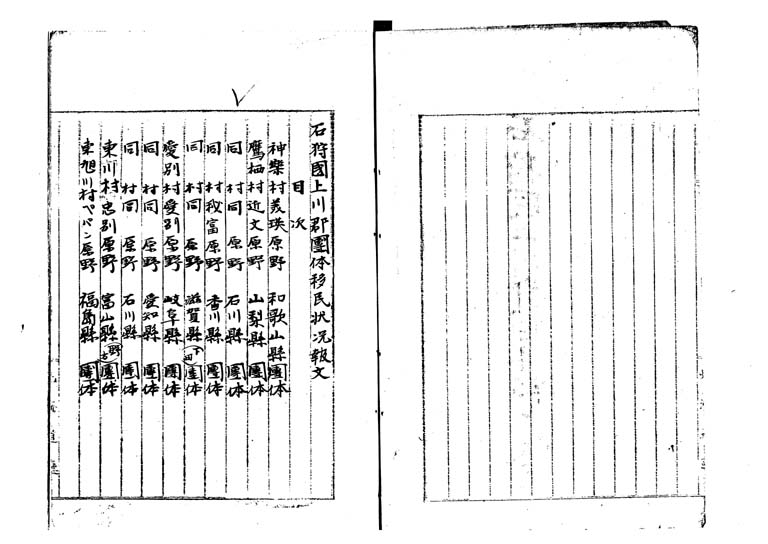 石狩國上川郡團体移民状況報文
目次
神樂村美瑛原野 和歌山縣團体
鷹栖村近文原野 山梨縣團体
同 村同 原野 石川縣團体
同 村秋富原野 香川縣團体
同 村同 原野 滋賀縣團体
愛別村愛別原野 岐阜縣團体
同 村同 原野 愛知縣團体
同 村同 原野 石川縣團体
東川村忠別原野 富山縣團体
東旭川村ペーパン原野 福島縣團体